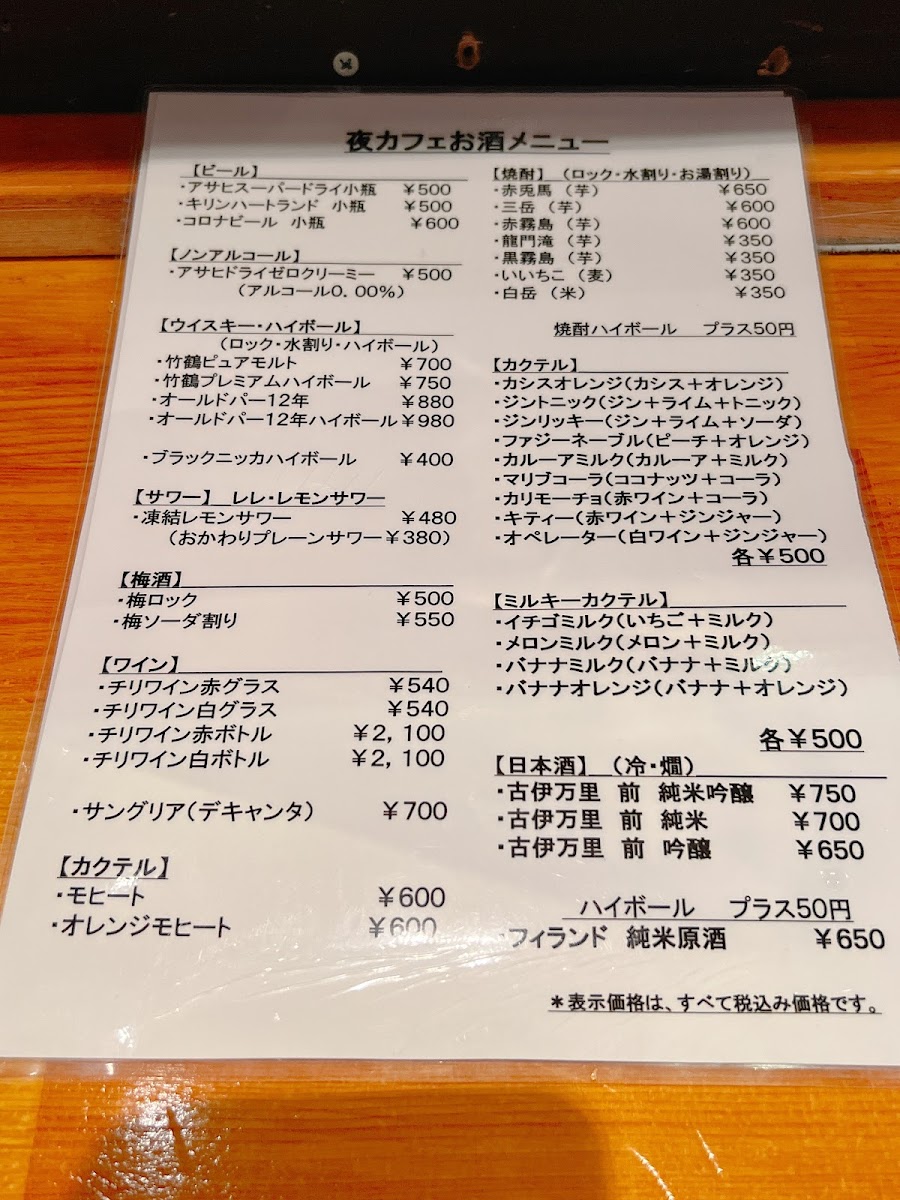 夜カフェお酒メニュー
【ビール】
・アサヒスーパードライ小瓶 ￥500
・キリンハートランド 小瓶 ￥500
・コロナビール 小瓶 ￥600
【ノンアルコール】
・アサヒドライゼロクリーミー ￥500
（アルコール0．00％）
【ウイスキー・ハイボール】
（ロック・水割り・ハイボール）
・竹鶴ピュアモルト ￥700
・竹鶴プレミアムハイボール ￥750
・オールドパー12年 ￥880
・オールドパー12年ハイボール ￥980
・ブラックニッカハイボール ￥400
【サワー】 レレ・レモンサワー
・凍結レモンサワー ￥480
（おかわりプレーンサワー￥380）
【梅酒】
・梅ロック ￥500
・梅ソーダ割り ￥550
【ワイン】
・チリワイン赤グラス ￥540
・チリワイン白グラス ￥540
・チリワイン赤ボトル ￥2，100
・チリワイン白ボトル ￥2，100
・サングリア（デキャンタ） ￥700
【カクテル】
・モヒート ￥600
・オレンジモヒート ￥600
【焼酎】 （ロック・水割り・お湯割り）
・赤兎馬 （芋） ￥650
・三岳 （芋） ￥600
・赤霧島 （芋） ￥600
・龍門滝 （芋） ￥350
・黒霧島 （芋） ￥350
・いいちこ （麦） ￥350
・白岳 （米） ￥350
焼酎ハイボール プラス50円
【カクテル】
・カシスオレンジ（カシス＋オレンジ）
・ジントニック（ジン＋ライム＋トニック）
・ジンリッキー（ジン＋ライム＋ソーダ）
・ファジーネーブル（ピーチ＋オレンジ）
・カルーアミルク（カルーア＋ミルク）
・マリブコーラ（ココナッツ＋コーラ）
・カリモーチョ（赤ワイン＋コーラ）
・キティー（赤ワイン＋ジンジャー）
・オペレーター（白ワイン＋ジンジャー）
各￥500
【ミルキーカクテル】
・イチゴミルク（いちご＋ミルク）
・メロンミルク（メロン＋ミルク）
・バナナミルク（バナナ＋ミルク）
・バナナオレンジ（バナナ＋オレンジ）
各￥500
【日本酒】 （冷・燗）
・古伊万里 前 純米吟醸 ￥750
・古伊万里 前 純米 ￥700
・古伊万里 前 吟醸 ￥650
ハイボール プラス50円
・フィランド 純米原酒 ￥650
＊表示価格は、すべて税込み価格です。